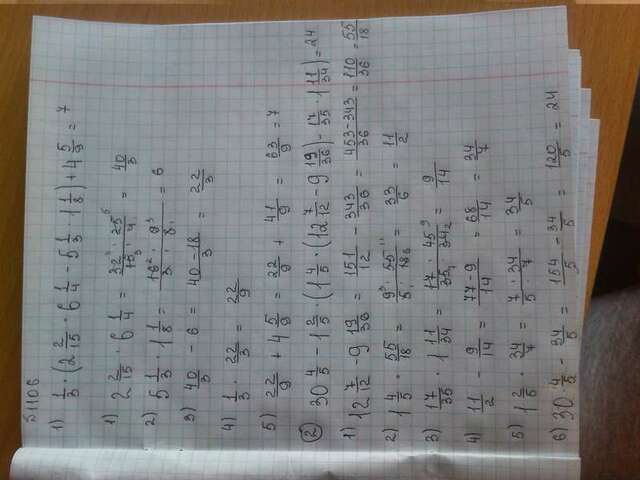 51106
1) 1/3 · (2 2/15 · 6 1/4 - 5 1/3 · 1 1/8) + 4 5/9 = 7
1) 2 2/15 · 6 1/4 = 32 · 25/15 · 4 = 40/3
2) 5 1/3 · 1 1/8 = 16 · 9/3 · 8 = 6
3) 40/3 - 6 = 40-18/3 = 22/3
4) 1/3 · 22/3 = 22/9
5) 22/9 + 4 5/9 = 22/9 + 41/9 = 63/9 = 7
② 30 4/5 - 1 2/5 · (1 4/5 · (12 7/12 - 9 19/36) - 17/35 · 1 11/34) = 24
1) 12 7/12 - 9 19/36 = 151/12 - 343/36 = 453-343/36 = 110/36 = 55/18
2) 1 4/5 · 55/18 = 9 · 55/5 · 18 = 33/6 = 11/2
3) 17/35 · 1 11/34 = 17 · 45/35 · 34 = 9/14
4) 11/2 - 9/14 = 77-9/14 = 68/14 = 34/7
5) 1 2/5 · 34/7 = 7 · 34/5 · 7 = 34/5
6) 30 4/5 - 34/5 = 154-34/5 = 120/5 = 24